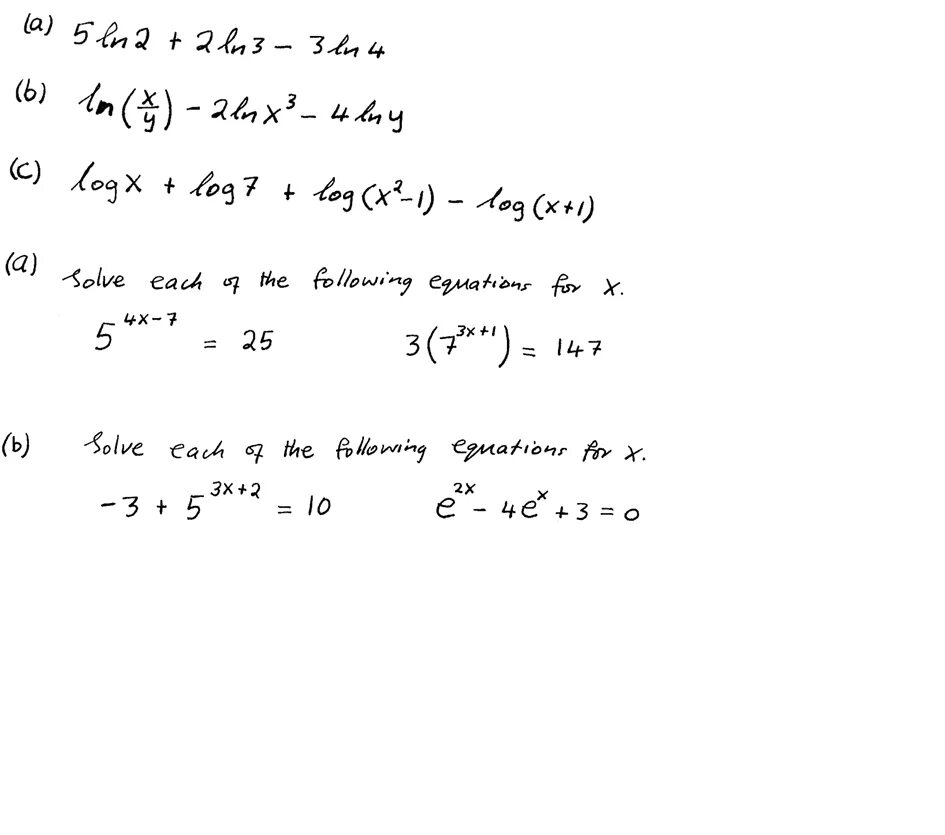 (a) 5 ln 2 + 2 ln 3 - 3 ln 4
(b) ln (x/y) - 2 ln x³ - 4 ln y
(c) log x + log 7 + log (x²-1) - log (x+1)
(a) Solve each of the following equations for x.
5^(4x-7) = 25    3(7^(3x+1)) = 147
(b) Solve each of the following equations for x.
-3 + 5^(3x+2) = 10    e^(2x) - 4e^x + 3 = 0